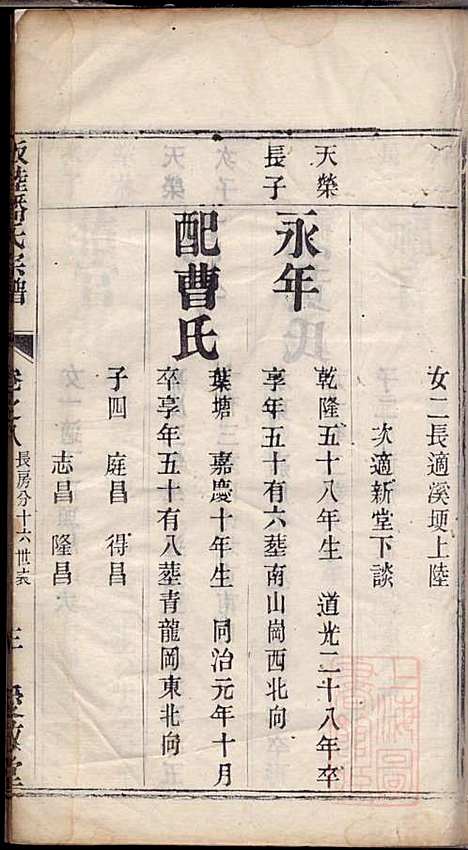 女二長適溪埂上陸
次適新堂下談
天榮
長子
永年
乾隆五十八年生 道光二十八年卒
享年五十有六塟南山崗西北向
配曹氏
葉塘 嘉慶十年生 同治元年十月
卒享年五十有八塟青龍岡東北向
子四 庭昌 得昌
志昌 隆昌
陸潘氏宗譜
卷之八
長房分十六世表
三